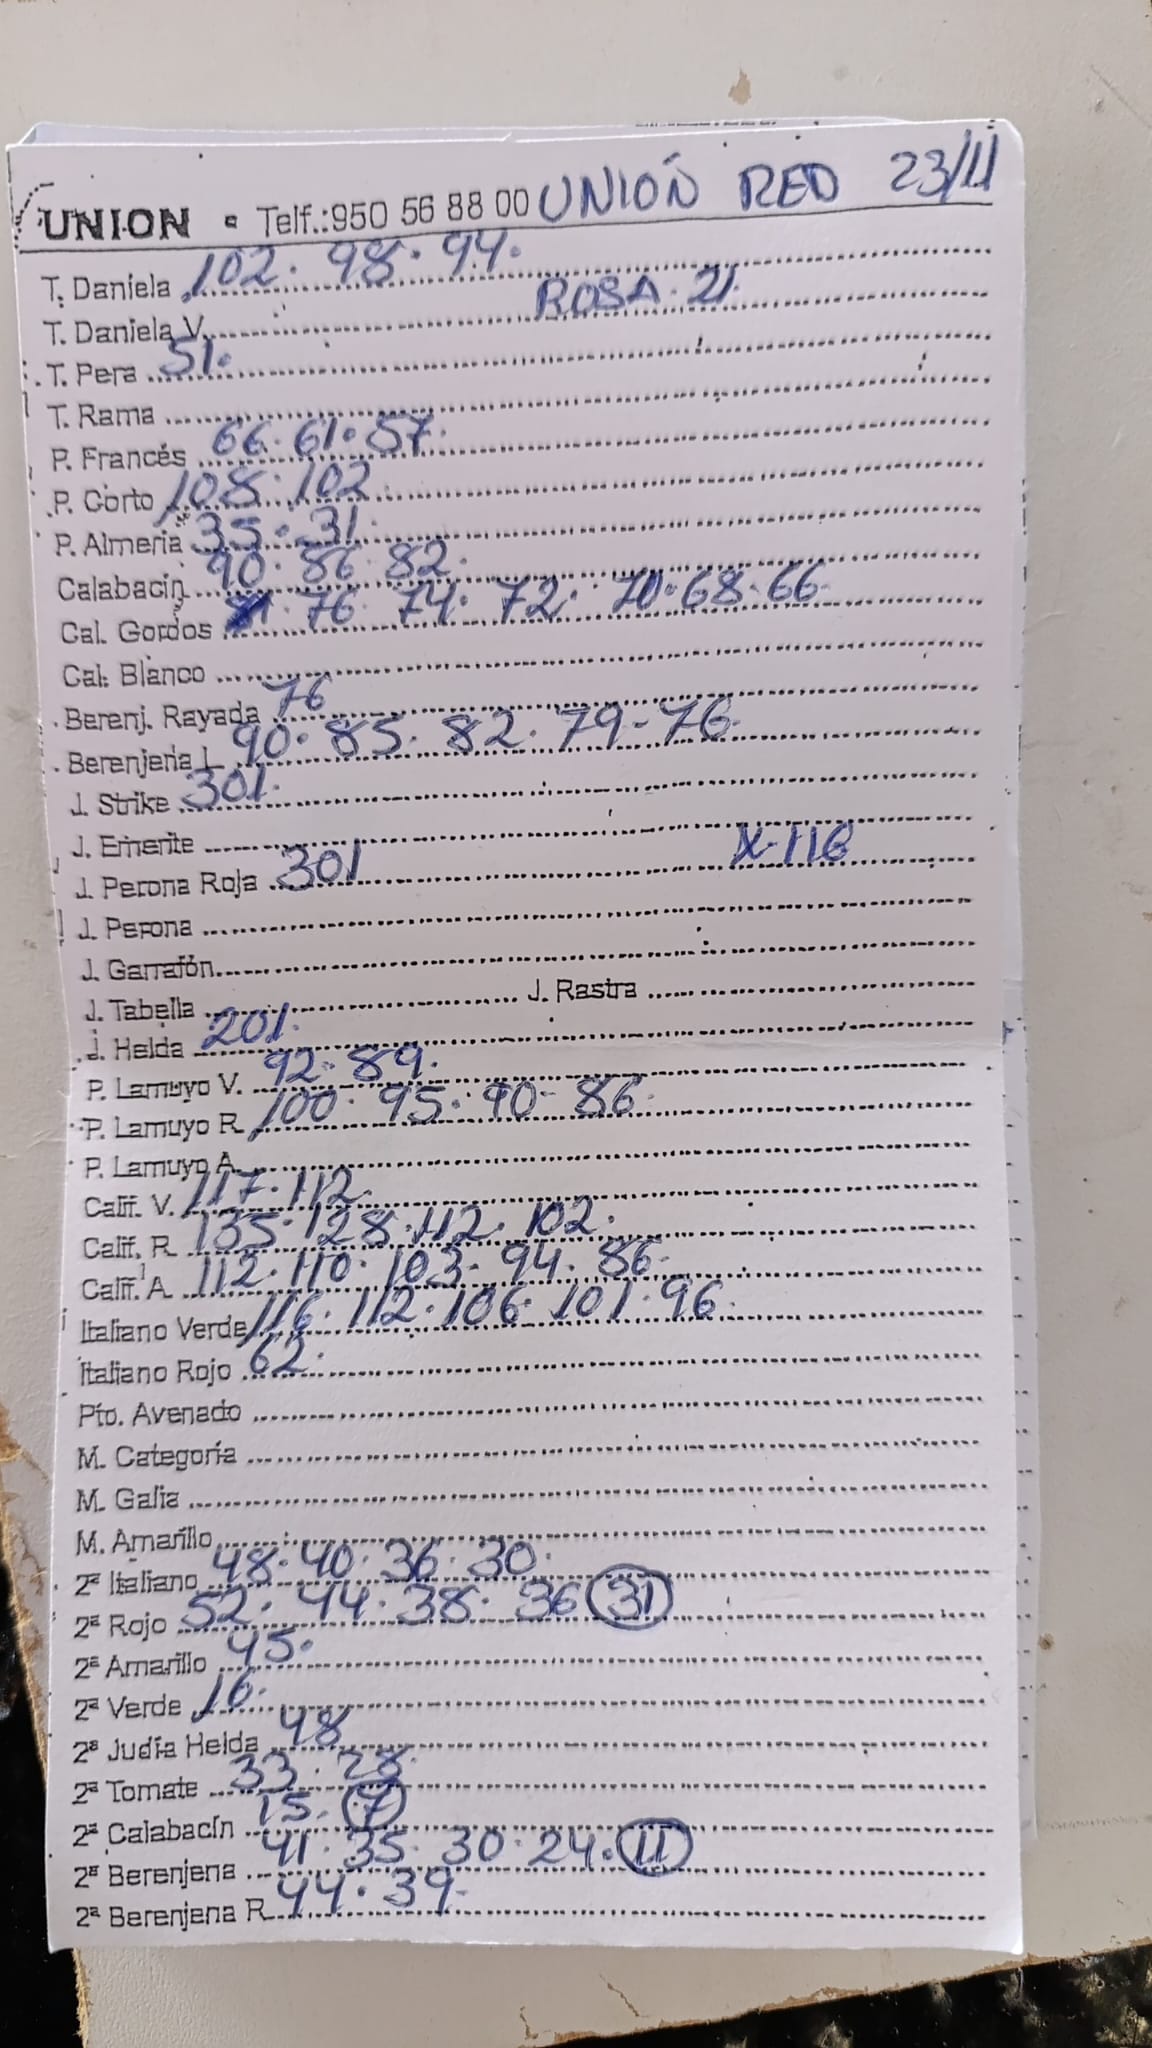 UNION • Telf.:950 56 88 00 UNIÓN RED 23/11
T. Daniela 102. 98. 94.
T. Daniela V. ROSA. 21.
T. Pera 51.
T. Rama
P. Francés 66. 61. 57.
P. Corto 108. 102.
P. Almería 35. 31.
Calabacín 90. 86. 82.
Cal. Gordos 76. 74. 72. 70. 68. 66.
Cal. Blanco
Berenj. Rayada 76
Berenjena L 90. 85. 82. 79- 76.
J. Strike 301.
J. Emerite
J. Perona Roja 301 X-116
J. Perona
J. Garrafón
J. Tabella J. Rastra
J. Helda 201.
P. Lamuyo V. 92. 89.
P. Lamuyo R 100. 95. 90- 86.
P. Lamuyo A
Calif. V. 117. 112.
Calif. R 135. 128. 112. 102.
Calif. A 112. 110. 103. 94. 86.
Italiano Verde 116. 112. 106. 101. 96.
Italiano Rojo 62.
Pto. Avenado
M. Categoría
M. Galia
M. Amarillo
2ª Italiano 48. 40. 36. 30.
2ª Rojo 52. 44. 38. 36 31
2ª Amarillo 45.
2ª Verde 16.
2ª Judía Helda 48
2ª Tomate 33. 28.
2ª Calabacín 15. 7
2ª Berenjena 41. 35. 30. 24. 11
2ª Berenjena R 44. 39.